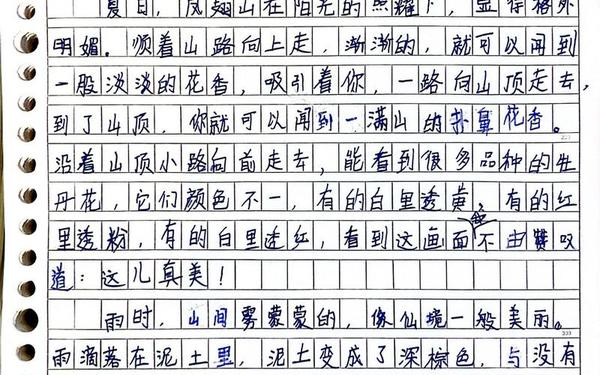 夏日，凤翅山在阳光的照耀下，显得格外
明媚。顺着山路向上走，渐渐的，就可以闻到
一股淡淡的花香，吸引着你，一路向山顶走去，
到了山顶，你就可以闻到一满山的扑鼻花香。
沿着山顶小路向前走去，能看到很多品种的牡
丹花，它们颜色不一，有的白里透黄，有的红
里透粉，有的白里连红，看到这画面不由赞叹
道：这儿真美！
雨时，山间雾蒙蒙的，像仙境一般美丽。
333
雨滴落在泥土里，泥土变成了深棕色，与没有